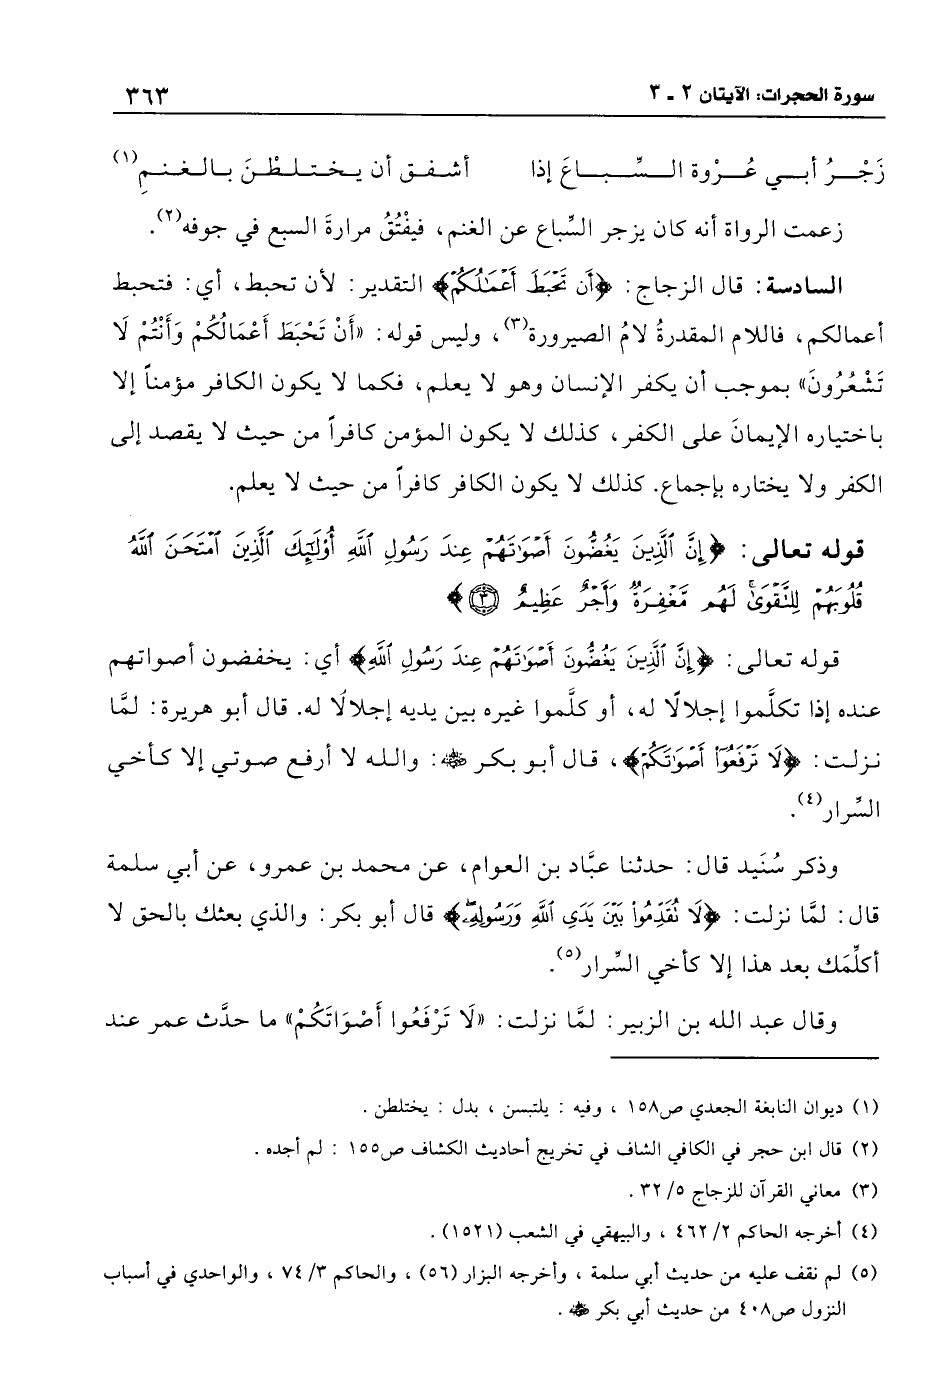 سورة الحجرات: الآيتان ٢ ـ ٣
٣٦٣
زَجْـرُ أبـي عُـرْوة الـسِّـبـاعَ إذا أشـفـق أن يـخـتـلـطْـنَ بـالـغـنـمِ(١)
زعمت الرواة أنه كان يزجر السِّباع عن الغنم، فيفْتُقُ مرارةَ السبع في جوفه(٢).
السادسة: قال الزجاج: ﴿أَن تَحْبَطَ أَعْمَٰلُكُمْ﴾ التقدير: لأن تحبط، أي: فتحبط
أعمالكم، فاللام المقدرةُ لامُ الصيرورة(٣)، وليس قوله: «أَنْ تَحْبَطَ أَعْمَالُكُمْ وَأَنْتُمْ لَا
تَشْعُرُونَ» بموجب أن يكفر الإنسان وهو لا يعلم، فكما لا يكون الكافر مؤمناً إلا
باختياره الإيمانَ على الكفر، كذلك لا يكون المؤمن كافراً من حيث لا يقصد إلى
الكفر ولا يختاره بإجماع. كذلك لا يكون الكافر كافراً من حيث لا يعلم.
قوله تعالى: ﴿إِنَّ ٱلَّذِينَ يَغُضُّونَ أَصْوَٰتَهُمْ عِندَ رَسُولِ ٱللَّهِ أُوْلَٰٓئِكَ ٱلَّذِينَ ٱمْتَحَنَ ٱللَّهُ
قُلُوبَهُمْ لِلتَّقْوَىٰۚ لَهُم مَّغْفِرَةٌ وَأَجْرٌ عَظِيمٌ ۝٣﴾
قوله تعالى: ﴿إِنَّ ٱلَّذِينَ يَغُضُّونَ أَصْوَٰتَهُمْ عِندَ رَسُولِ ٱللَّهِ﴾ أي: يخفضون أصواتهم
عنده إذا تكلَّموا إجلالًا له، أو كلَّموا غيره بين يديه إجلالًا له. قال أبو هريرة: لمَّا
نزلت: ﴿لَا تَرْفَعُوٓا۟ أَصْوَٰتَكُمْ﴾، قال أبو بكر ﷺ: والله لا أرفع صوتي إلا كأخي
السِّرار(٤).
وذكر سُنَيد قال: حدثنا عبَّاد بن العوام، عن محمد بن عمرو، عن أبي سلمة
قال: لمَّا نزلت: ﴿لَا تُقَدِّمُوا۟ بَيْنَ يَدَىِ ٱللَّهِ وَرَسُولِهِۦۖ﴾ قال أبو بكر: والذي بعثك بالحق لا
أكلِّمك بعد هذا إلا كأخي السِّرار(٥).
وقال عبد الله بن الزبير: لمَّا نزلت: «لَا تَرْفَعُوا أَصْوَاتَكُمْ» ما حدَّث عمر عند
(١) ديوان النابغة الجعدي ص١٥٨ ، وفيه : يلتبسن ، بدل : يختلطن .
(٢) قال ابن حجر في الكافي الشاف في تخريج أحاديث الكشاف ص١٥٥ : لم أجده .
(٣) معاني القرآن للزجاج ٥/ ٣٢ .
(٤) أخرجه الحاكم ٢/ ٤٦٢ ، والبيهقي في الشعب (١٥٢١) .
(٥) لم نقف عليه من حديث أبي سلمة ، وأخرجه البزار (٥٦) ، والحاكم ٣/ ٧٤ ، والواحدي في أسباب
النزول ص٤٠٨ من حديث أبي بكر .